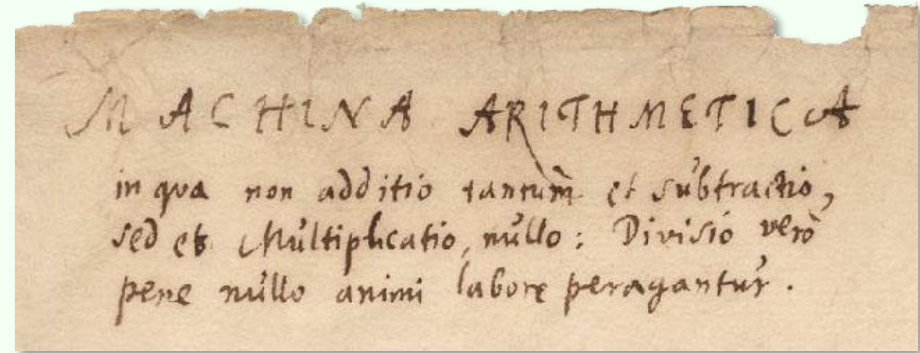 MACHINA ARITHMETICA
in qua non additio tantum et subtractio,
sed et Multiplicatio, nullo; Divisio verò
pene nullo animi labore peragantur.